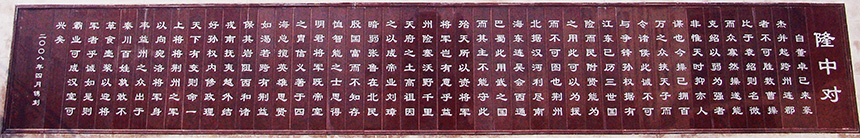 隆中对
自董卓已来豪
杰并起跨州连郡
者不可胜数曹操
比于袁绍则名微
而众寡然操遂能
克绍以弱为强者
非惟天时抑亦人
谋也今操已拥百
万之众挟天子而
令诸侯此诚不可
与争锋孙权据有
江东已历三世国
险而民附贤能为
之用此可以为援
而不可图也荆州
北据汉沔利尽南
海东连吴会西通
巴蜀此用武之国
而其主不能守此
殆天所以资将军
将军岂有意乎益
州险塞沃野千里
天府之土高祖因
之以成帝业刘璋
暗弱张鲁在北民
殷国富而不知存
恤智能之士思得
明君将军既帝室
之胄信义著于四
海总揽英雄思贤
如渴若跨有荆益
保其岩阻西和诸
戎南抚夷越外结
好孙权内修政理
天下有变则命一
上将将荆州之军
以向宛洛将军身
率益州之众出于
秦川百姓孰敢不
箪食壶浆以迎将
军者乎诚如是则
霸业可成汉室可
兴矣
二〇〇八年四月镌刻